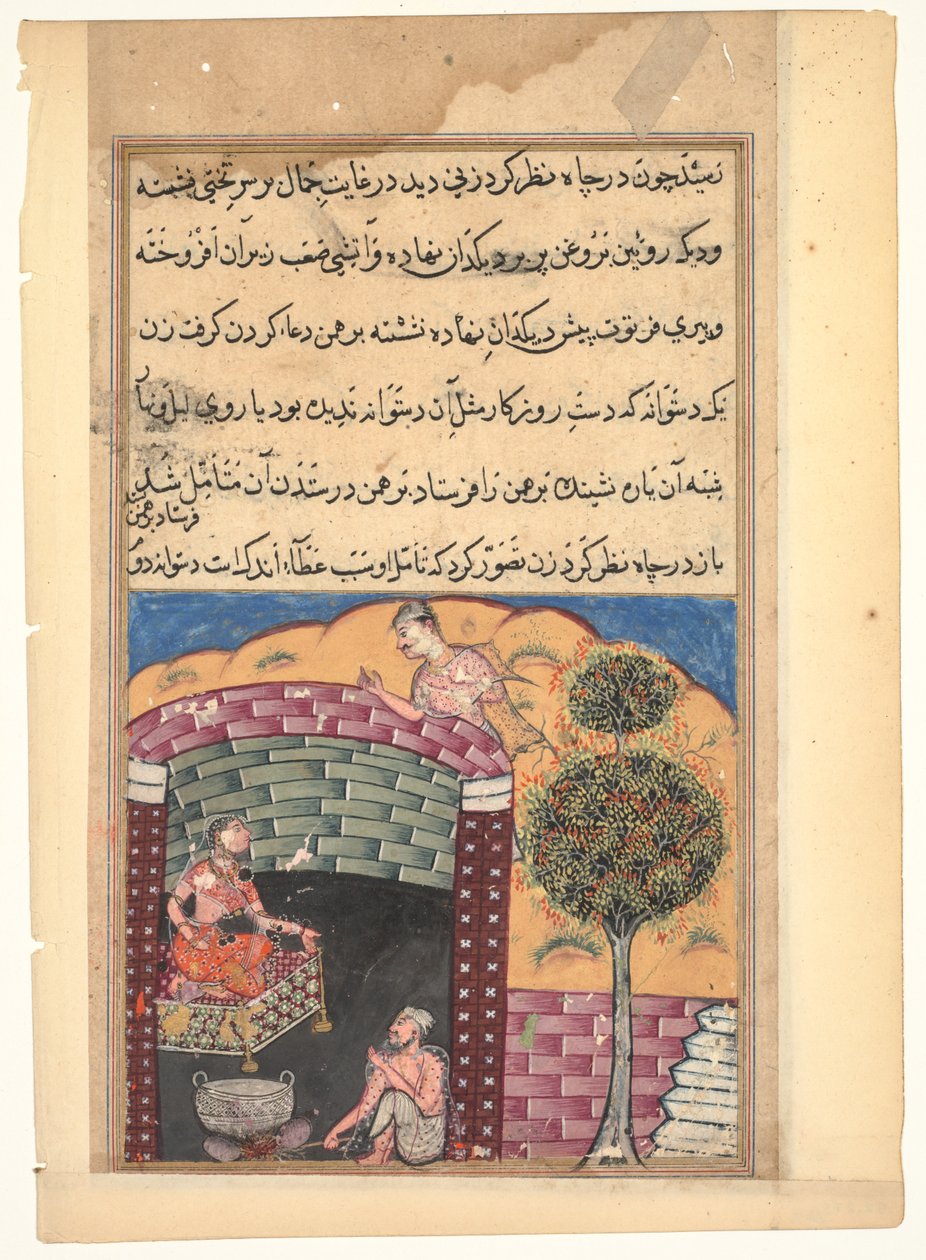 رسید چون در چاه نظر کرد زنی دید در غایتِ جمال بر سرِ تختی نشسته
و دیک رویین بَرُوغن پر بر دیکدان نهاده وَآتشی صَعَب زیرآن اَفرُوخَتَه
و پیری فرتوت پیش دیکدانِ نهاده نشسته برهمن دعاء کردن کرفت زن
یک دستَوَانَه که دستِ روزکار مثلِ آن دستَوَانه نَدِیده بود یا روي لیل و نهار
شِبه آن یاره نشینده بَرهمِن رَا فرستاد برهمن در ستَدن آن مُتَأَمِّل شد
فرستاد برهمن بستد
باز در چاه نظر کَرد زن تصَوّر کرد که تأمل او سَبَب عَطَآءِ اندک است دستوانه دوم